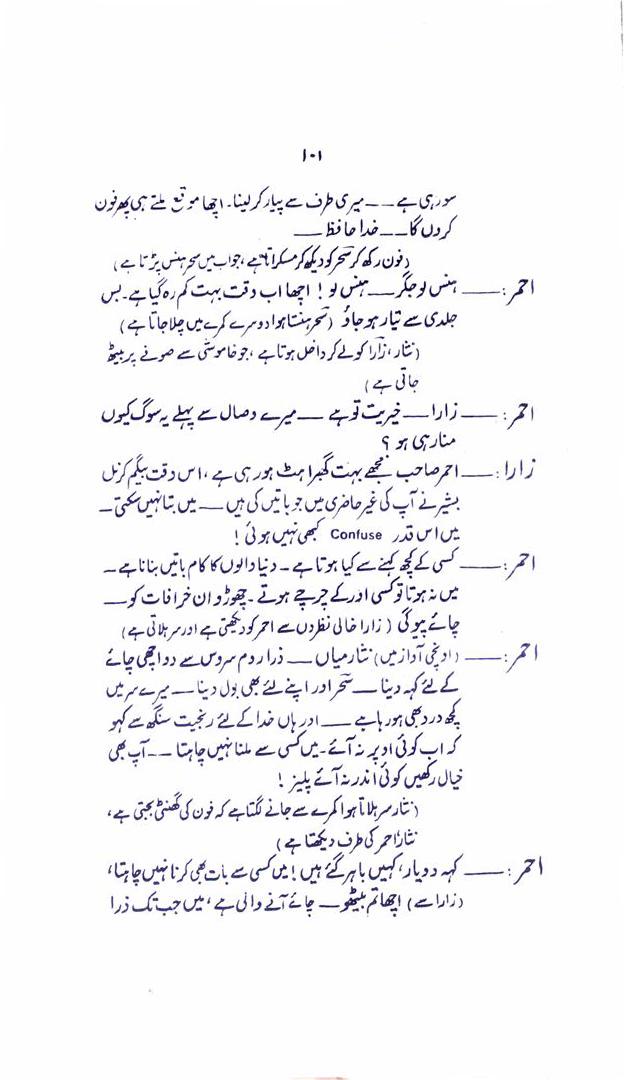 ۱۰۱
سو رہی ہے ــــ میری طرف سے پیار کر لینا۔ اچھا موقع ملتے ہی پھر فون
کروں گا ــــ خدا حافظ ــــ
(فون رکھ کر سحر کو دیکھ کر مسکراتا ہے، جواب میں سحر ہنس پڑتا ہے)
احمر: ــــ ہنس لو جگر ــــ ہنس لو! اچھا اب وقت بہت کم رہ گیا ہے۔ بس
جلدی سے تیار ہو جاؤ (سحر ہنستا ہوا دوسرے کمرے میں چلا جاتا ہے)
(نثار، زارا کو لے کر داخل ہوتا ہے، جو خاموشی سے صوفے پر بیٹھ
جاتی ہے)
احمر: ــــ زارا ــــ خیریت تو ہے ــــ میرے وصال سے پہلے یہ سوگ کیوں
منا رہی ہو؟
زارا: ــــ احمر صاحب مجھے بہت گھبراہٹ ہو رہی ہے، اس وقت بیگم کرنل
بشیر نے آپ کی غیر حاضری میں جو باتیں کی ہیں ــــ میں بتا نہیں سکتی ــ
میں اس قدر Confuse کبھی نہیں ہوئی!
احمر: ــــ کسی کے کچھ کہنے سے کیا ہوتا ہے۔ دنیا والوں کا کام باتیں بنانا ہے ــ
میں نہ ہوتا تو کسی اور کے چرچے ہوتے۔ چھوڑو ان خرافات کو ــــ
چائے پیو گی (زارا خالی نظروں سے احمر کو دیکھتی ہے اور سر ہلاتی ہے)
احمر: ــــ (اونچی آواز میں) نثار میاں ــــ ذرا روم سروس سے دو اچھی چائے
کے لئے کہہ دینا ــــ سحر اور اپنے لئے بھی بول دینا ــــ میرے سر میں
کچھ درد بھی ہو رہا ہے ــــ اور ہاں خدا کے لئے رنجیت سنگھ سے کہو
کہ اب کوئی اوپر نہ آئے۔ میں کسی سے ملنا نہیں چاہتا ــــ آپ بھی
خیال رکھیں کوئی اندر نہ آئے پلیز!
(نثار سر ہلاتا ہوا کمرے سے جانے لگتا ہے کہ فون کی گھنٹی بجتی ہے،
نثار احمر کی طرف دیکھتا ہے)
احمر: ــــ کہہ دو یار، کہیں باہر گئے ہیں! میں کسی سے بات بھی کرنا نہیں چاہتا،
(زارا سے) اچھا تم بیٹھو ــــ چائے آنے والی ہے، میں جب تک ذرا